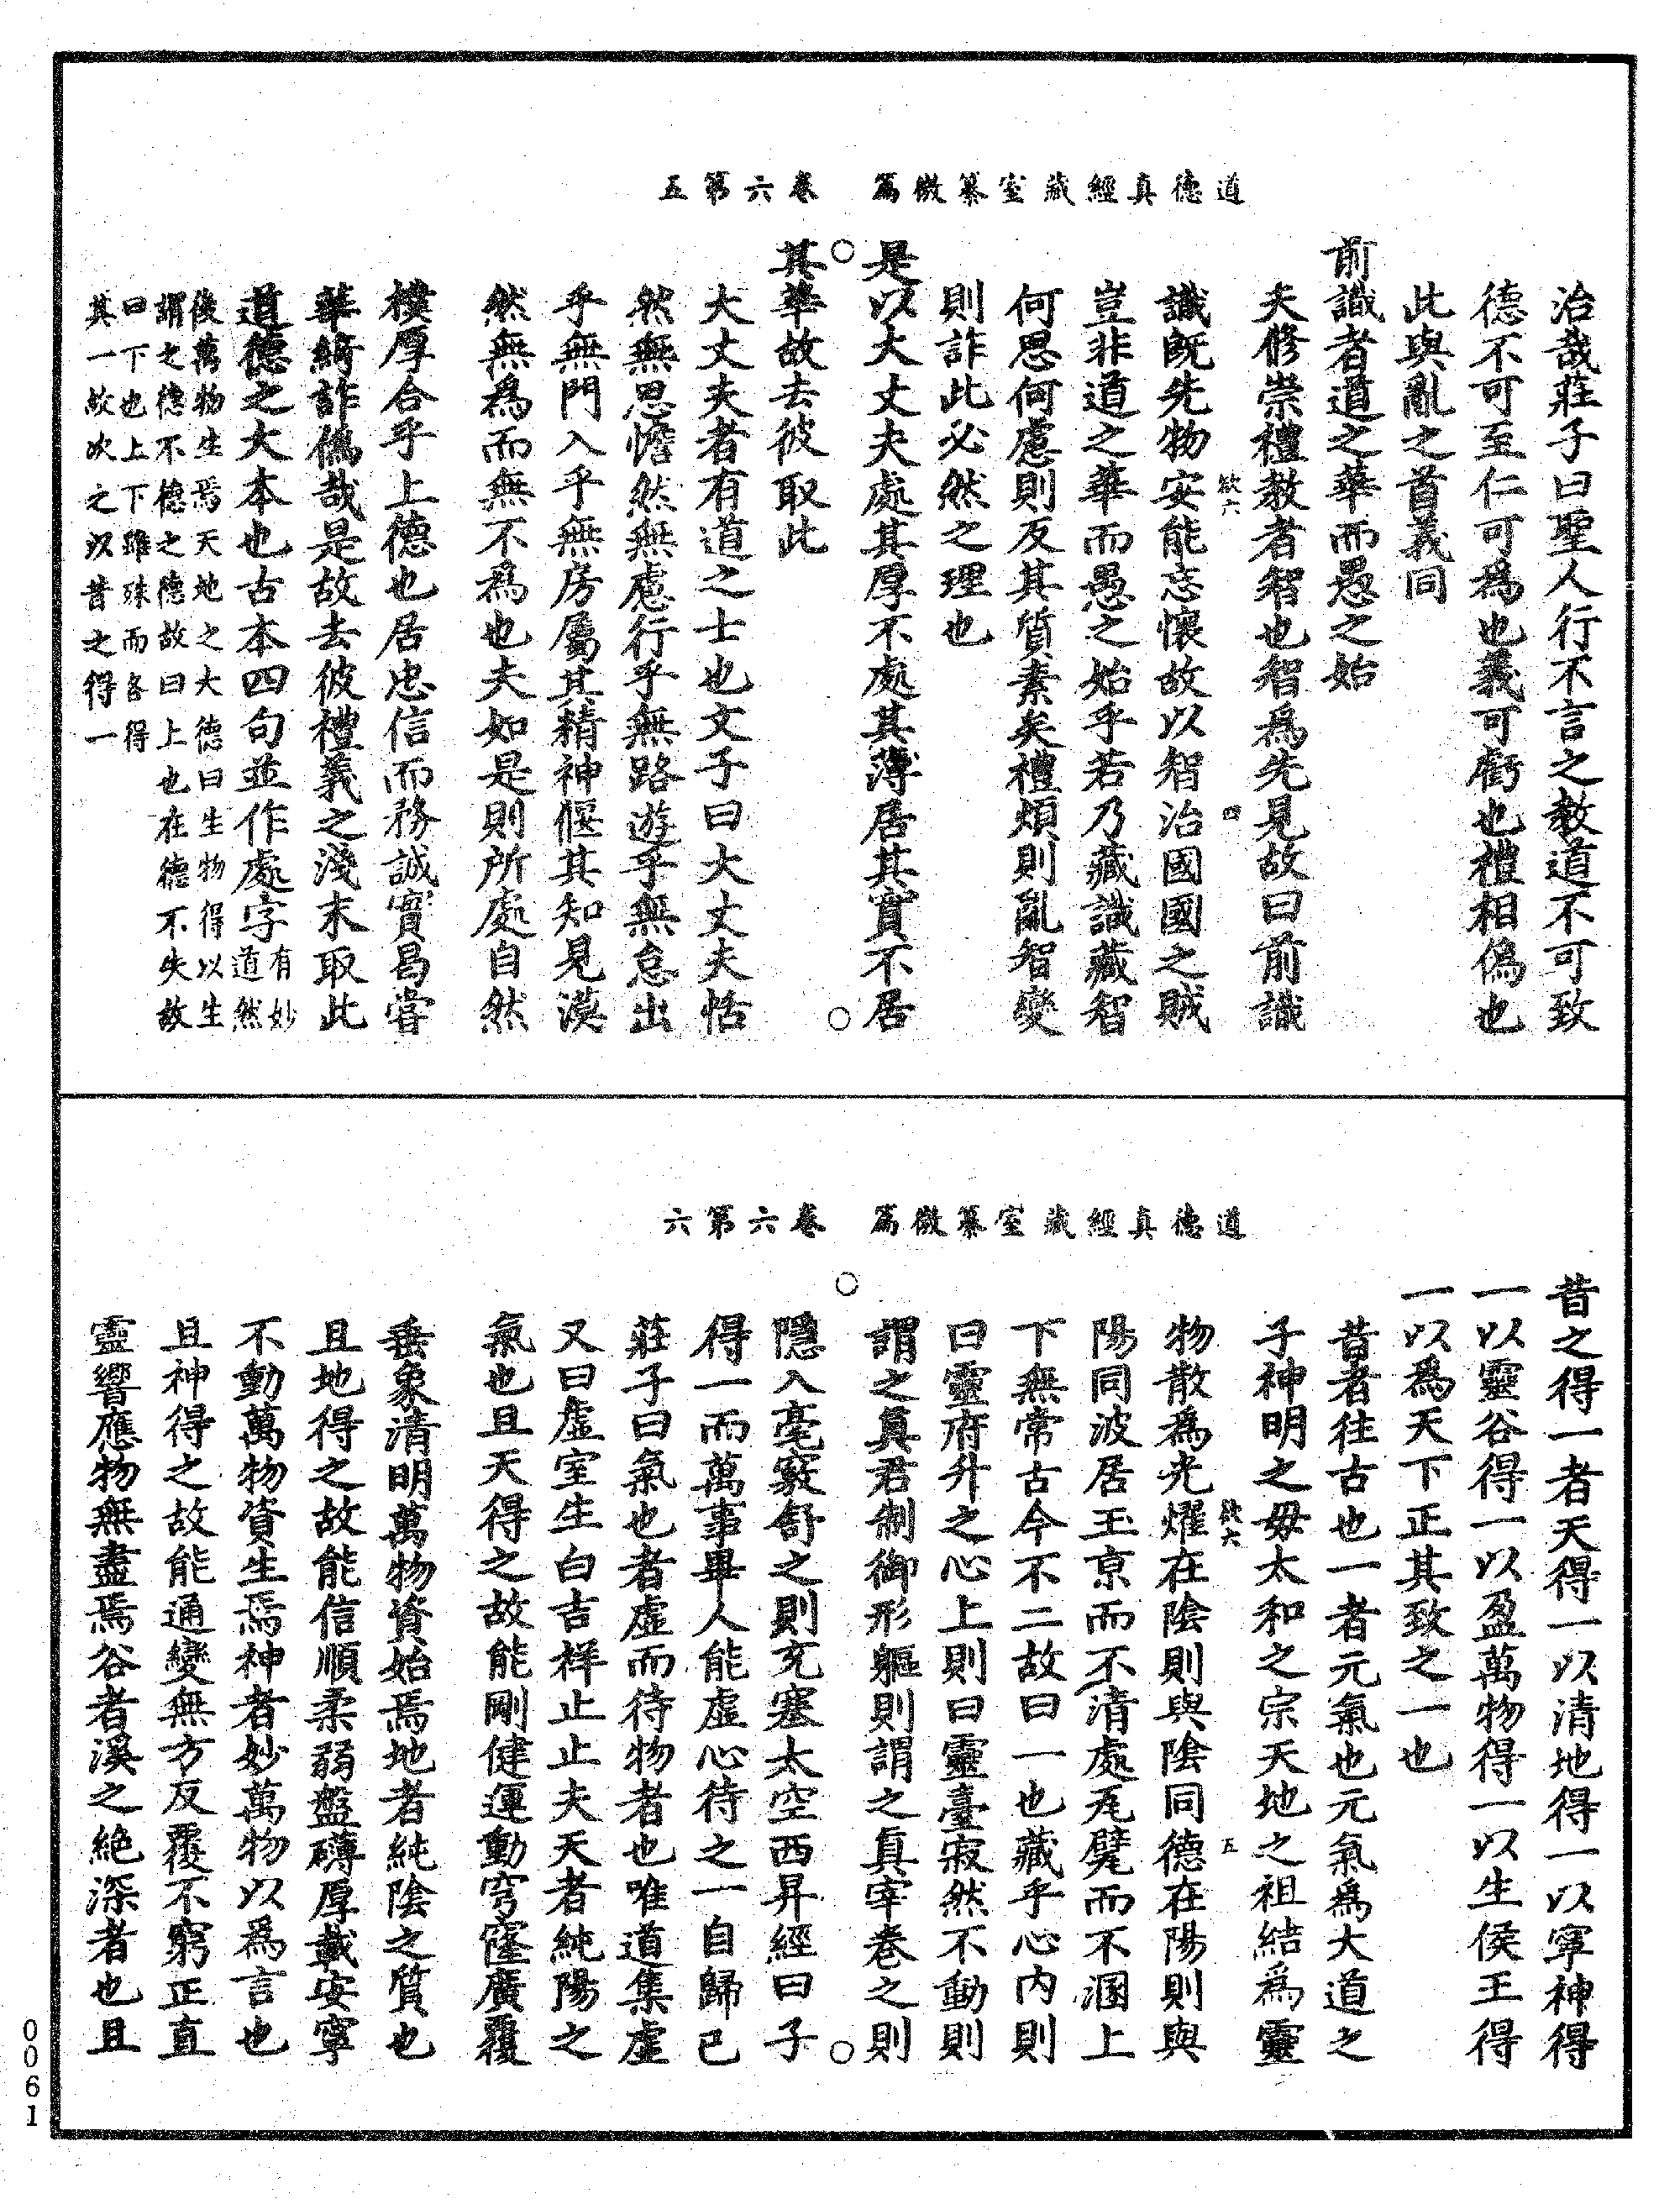 道德真經藏室纂微篇　卷六第五
治哉莊子曰聖人行不言之教道不可致
德不可至仁可爲也義可虧也禮相偽也
此與亂之首義同
前識者道之華而愚之始
夫修崇禮教者智也智爲先見故曰前識
欲六　四
識旣先物安能忘懷故以智治國國之賊
豈非道之華而愚之始乎若乃藏識藏智
何思何慮則反其質素矣禮煩則亂智變
則詐此必然之理也
是以大丈夫處其厚不處其薄居其實不居
其華故去彼取此
大丈夫者有道之士也文子曰大丈夫恬
然無思憺然無慮行乎無路遊乎無怠出
乎無門入乎無房屬其精神偃其知見漠
然無爲而無不爲也夫如是則所處自然
樸厚合乎上德也居忠信而務誠實曷嘗
華綺詐偽哉是故去彼禮義之淺末取此
道德之大本也古本四句並作處字有妙道然
後萬物生焉天地之大德曰生物得以生
謂之德不德之德故曰上也在德不失故
曰下也上下雖殊而各得
其一故次之以昔之得一
道德真經藏室纂微篇　卷六第六
昔之得一者天得一以清地得一以寧神得
一以靈谷得一以盈萬物得一以生侯王得
一以爲天下正其致之一也
昔者往古也一者元氣也元氣爲大道之
子神明之母太和之宗天地之祖結爲靈
欲六　五
物散爲光燿在陰則與陰同德在陽則與
陽同波居玉京而不清處瓦甓而不溷上
下無常古今不二故曰一也藏乎心內則
曰靈府升之心上則曰靈臺寂然不動則
謂之真君制御形軀則謂之真宰卷之則
隱入毫竅舒之則充塞太空西昇經曰子
得一而萬事畢人能虛心待之一自歸已
莊子曰氣也者虛而待物者也唯道集虛
又曰虛室生白吉祥止止夫天者純陽之
氣也且天得之故能剛健運動穹窿廣覆
垂象清明萬物資始焉地者純陰之質也
且地得之故能信順柔弱盤礴厚載安寧
不動萬物資生焉神者妙萬物以爲言也
且神得之故能通變無方反覆不窮正直
靈響應物無盡焉谷者溪之絕深者也且
0061